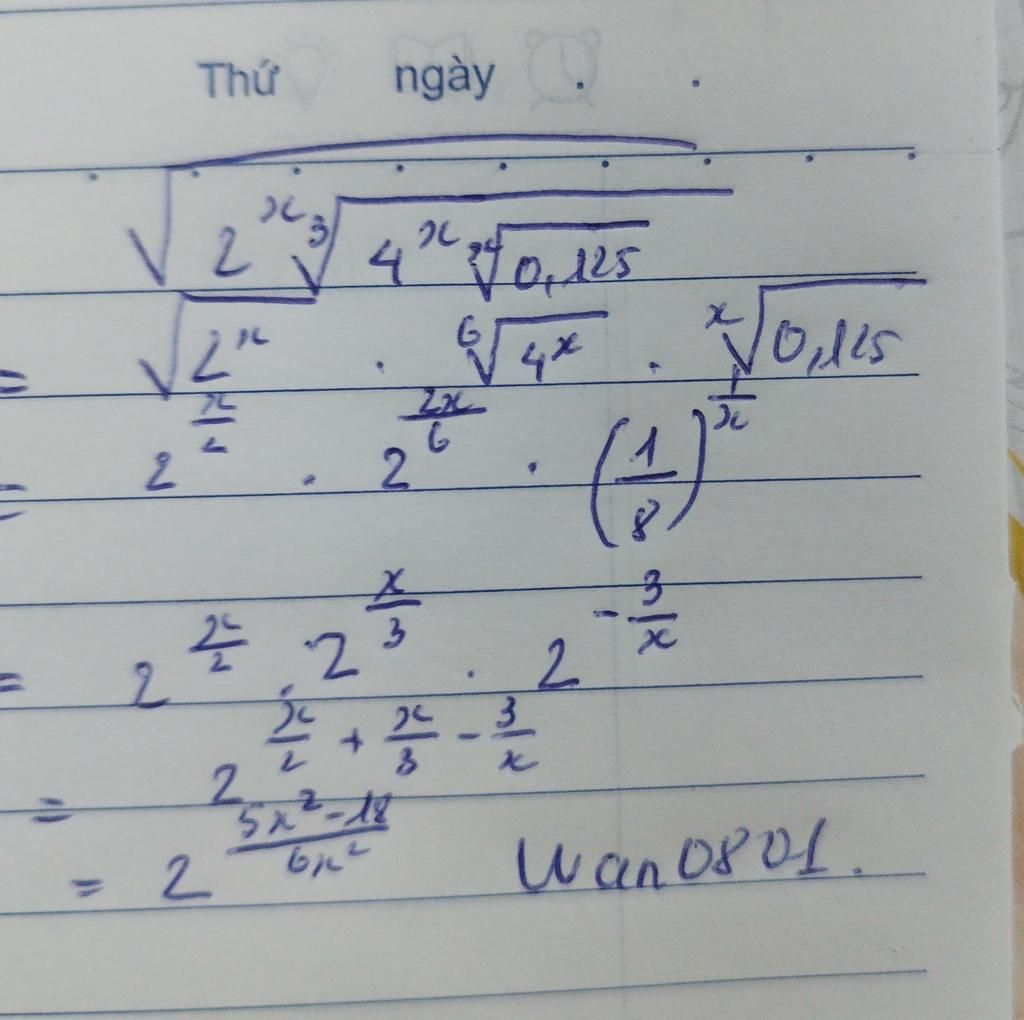 Thứ ngày . .
√(2^x ∛(4^x ˣ√(0,125)))
= √(2^x) . ⁶√(4^x) . ˣ√(0,125)
= 2^(x/2) . 2^(2x/6) . (1/8)^(1/x)
= 2^(x/2) . 2^(x/3) . 2^(-3/x)
= 2^(x/2 + x/3 - 3/x)
= 2^((5x²-18)/(6x²)) Wan0801.